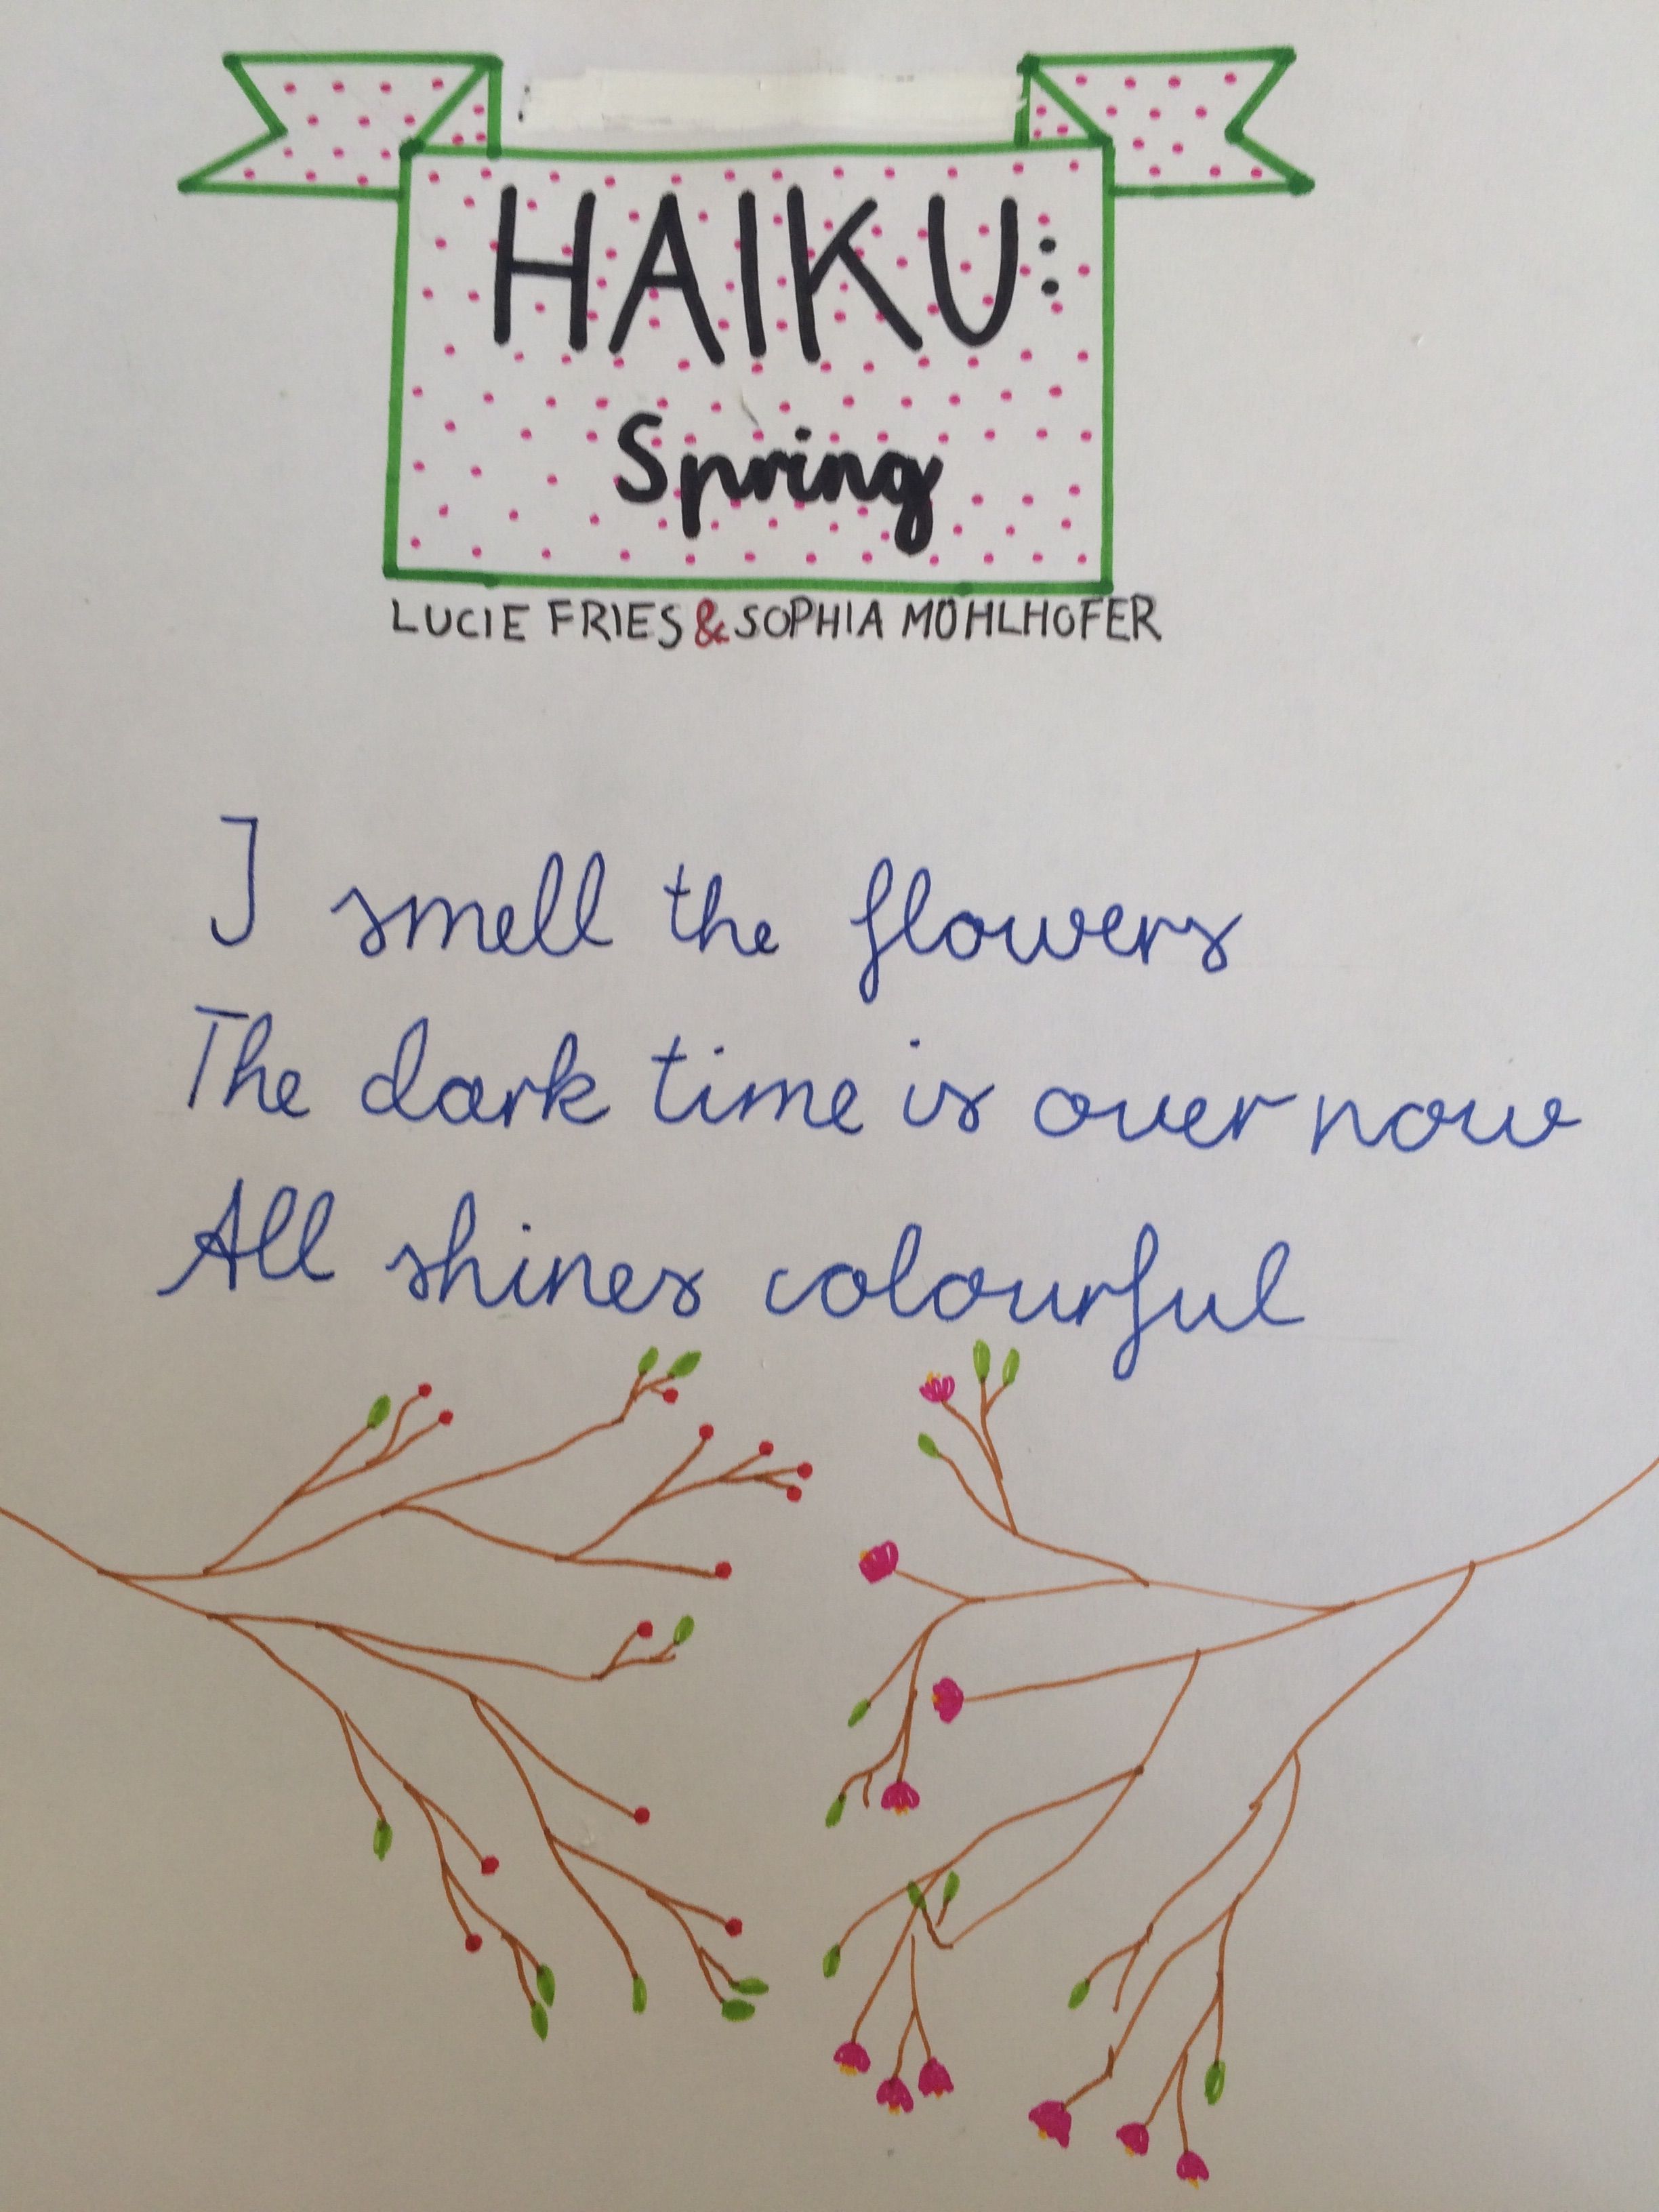 HAIKU:
Spring
LUCIE FRIES & SOPHIA MÜHLHOFER
I smell the flowers
The dark time is over now
All shines colourful